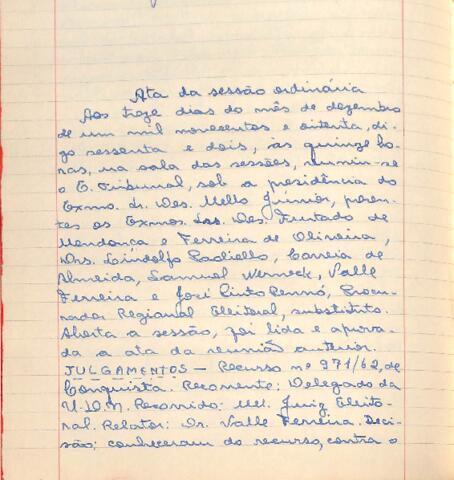 Ata da sessão ordinária
Aos treze dias do mês de dezembro
de um mil novecentos e oitenta, di-
go sessenta e dois, às quinze ho-
ras, na sala das sessões, reuniu-se
o E. Tribunal, sob a presidência do
Exmo. Sr. Des. Mello Júnior, presen-
tes os Exmos. Srs. Des. Furtado de
Mendonça e Ferreira de Oliveira,
Drs. Lindolfo Paoliello, Correia de
Almeida, Samuel Werneck, Valle
Ferreira e José Pinto Rennó, Procu-
rador Regional Eleitoral, substituto.
Aberta a sessão, foi lida e aprova-
da a ata da reunião anterior.
JULGAMENTOS - Recurso nº 971/62, de
Conquista. Recorrente: Delegado da
U.D.N. Recorrido: MM. Juiz Eleito-
ral. Relator: Dr. Valle Ferreira. Deci-
são: conheceram do recurso, contra o